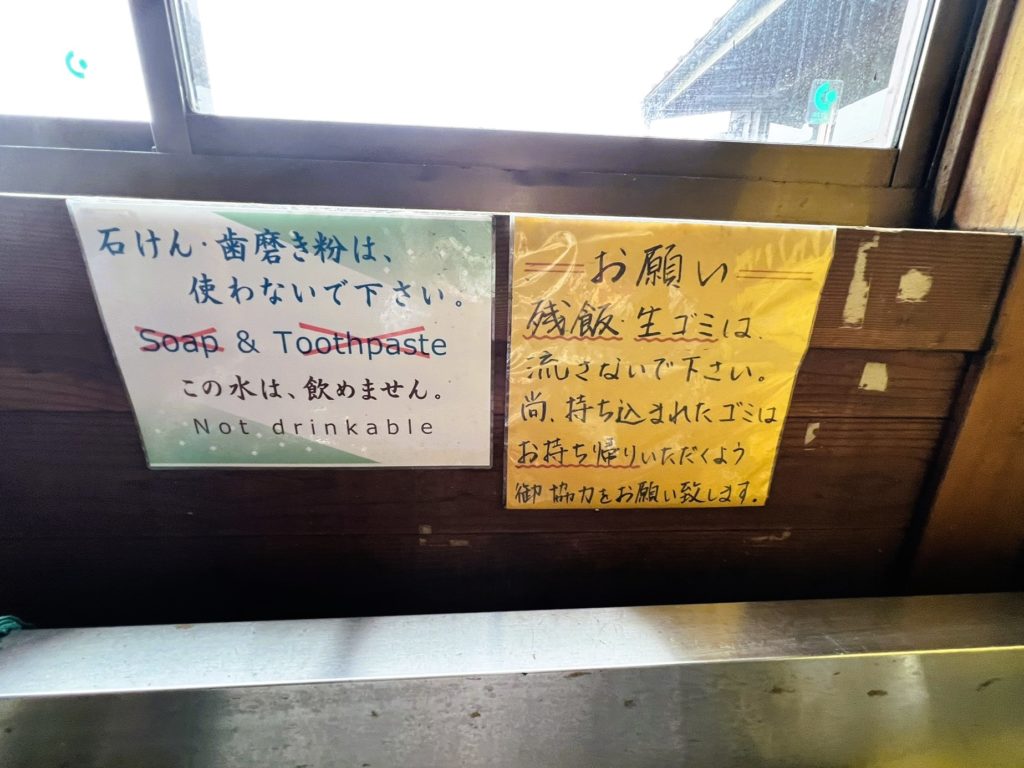 石けん・歯磨き粉は、
使わないで下さい。
Soap & Toothpaste
この水は、飲めません。
Not drinkable
お願い
残飯・生ゴミは、
流さないで下さい。
尚、持ち込まれたゴミは
お持ち帰りいただくよう
御協力をお願い致します。